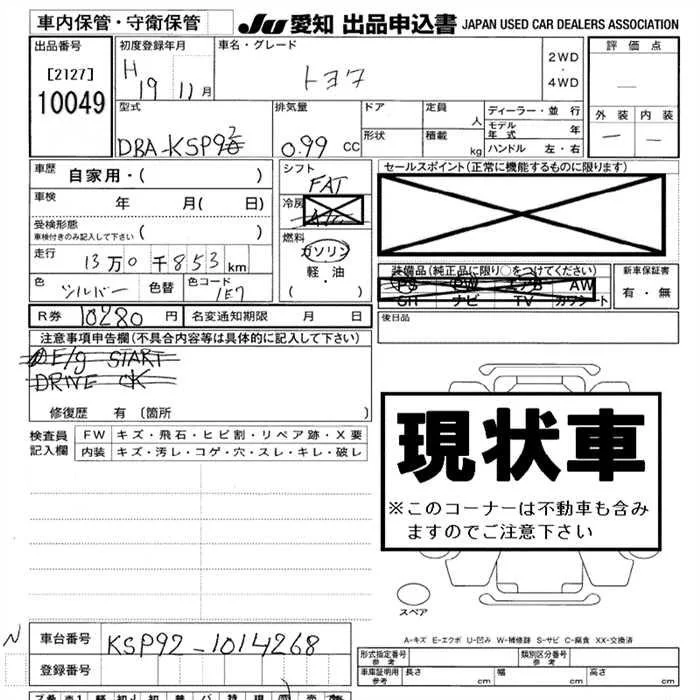 車内保管・守衛保管
JU 愛知 出品申込書 JAPAN USED CAR DEALERS ASSOCIATION
出品番号
[2127]
10049
初度登録年月
H 19 11 月
車名・グレード
トヨタ
2WD
・
4WD
評価点
—
外装 内装
— —
型式
DBA-KSP92
排気量
0.99 CC
ドア
形状
定員
人
積載
kg
ディーラー・並行
モデル年式 年
ハンドル 左・右
車歴
自家用・( )
車検
年 月( 日)
受検形態
車検付きのみ記入して下さい ( )
走行
13万0千853km
色
シルバー
色替
色コード
1E7
シフト
FAT
冷房
A/C
燃料
ガソリン
軽・油
( ・ )
セールスポイント(正常に機能するものに限ります)
装備品(純正品に限り○をつけてください)
PS PW エアB AW
SR ナビ TV カワシート
新車保証書
有・無
後日品
R券 10280 円
名変通知期限 月 日
注意事項申告欄(不具合内容等は具体的に記入して下さい)
E/g START
DRIVE OK
修復歴 有 〔箇所 〕
検査員
記入欄
FW キズ・飛石・ヒビ割・リペア跡・X要
内装 キズ・汚レ・コゲ・穴・スレ・キレ・破レ
現状車
※このコーナーは不動車も含み
ますのでご注意下さい
スペア
A-キズ E-エクボ U-凹み W-補修跡 S-サビ C-腐食 XX-交換済
N
車台番号
KSP92-1014268
登録番号
形式指定番号
参考
類別区分番号
参考
車庫証明用
参考
長さ cm
幅 cm
高さ cm